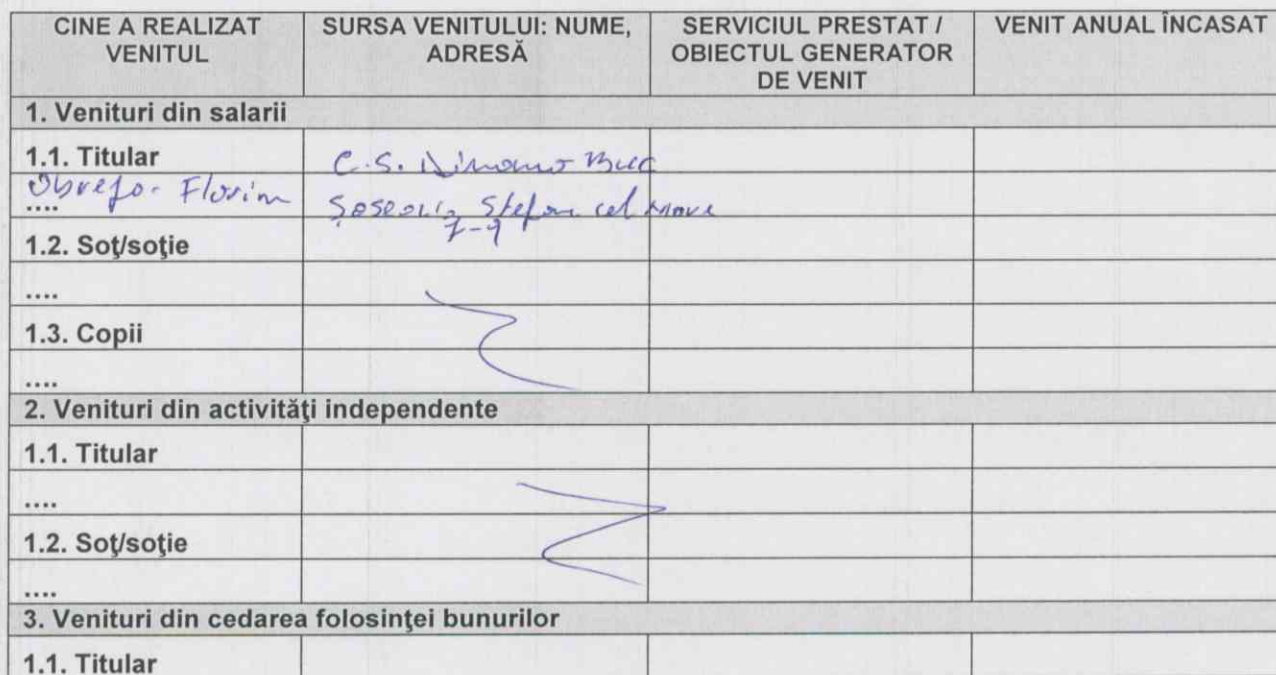 CINE A REALIZAT VENITUL SURSA VENITULUI: NUME, ADRESĂ SERVICIUL PRESTAT / OBIECTUL GENERATOR DE VENIT VENIT ANUAL ÎNCASAT
1. Venituri din salarii
1.1. Titular C.S. Dinamo Buc
.... Florin Șoseaua Ștefan cel Mare
7-9
1.2. Soţ/soţie
....
1.3. Copii
....
2. Venituri din activităţi independente
1.1. Titular
....
1.2. Soţ/soţie
....
3. Venituri din cedarea folosinţei bunurilor
1.1. Titular